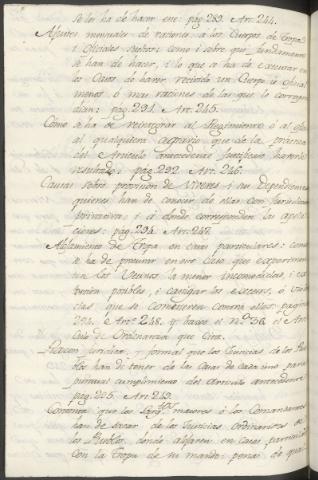 se les ha de hacer en: pag 289. Art. 244.
Ajustes mensuales de raciones à los Cuerpos de Tropa
i Oficiales sueltos: como i sobre que fundamento
se han de hacer, i lo que se ha de executar en
los Casos de haver recivido un Cuerpo ù Oficial
menos ò mas raciones de las que le correspon
dian: pag. 291. Art. 245.
Cómo se ha de reintegrar al Regimiento ò al ofi
al qualquiera agravio que de la practica
del Articulo antecedente justifique haverle
resultado: pag. 292. Art. 246.
Causas sobre provision de Viveres i sus Dependientes
quienes han de conocer de ellas con jurisdiccion
privativa: i à donde corresponden las apela
ciones: pag. 294. Art. 247.
Alojamiento de Tropa en casas particulares: como
se ha de procurar en este Caso que experimen
ten los Vecinos la menor incomodidad, i
posibles, i castigar los excesos, ò
que se cometieren contra ellos: pagina
294. Art. 248. y havrà el nº 56. el Arti
culo de Ordenanza que Cita.
Razon jurada, y formal que las Justicias de los Pue
blos han de tener de las Casas de cada uno para
puntual cumplimiento del Articulo antecedente:
pag. 295. Art. 249.
que los mayores ò los Comandantes
han de sacar de las Justicias Ordinarias de
los Pueblos, donde alojaren en casas particulares
con la Tropa de su mando: penas de que